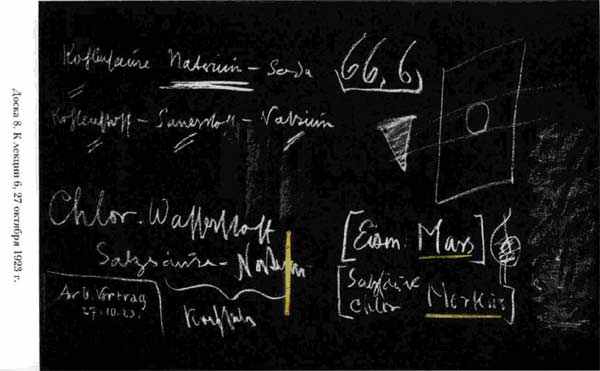 Доска 8. К лекции 6, 27 октября 1923 г.
Kohlensäure Natrium – Soda
66,6
Kohlenstoff – Sauerstoff – Natrium
Chlor. Wasserstoff
Salzsäure – Natrium
Kochsalz
Arb. Vortrag
27.10.23.
[Eisen. Mars]
[Salzsäure
Chlor Merkur]